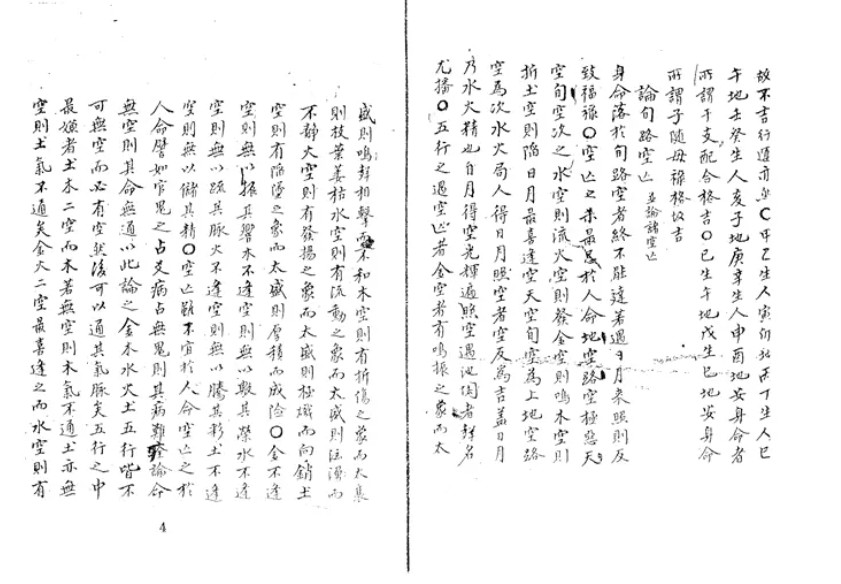 故不吉行運亦忌〇甲乙生人寅卯地丙丁生人巳
午地壬癸生人亥子地庚辛生人申酉地安身命者
所謂干支配合格吉〇巳生午地戊生巳地安身命
所謂子随母祿格故吉
論旬路空亡 並論諸空亡
身命落於旬路空者終不能達若遇日月來照則反
致福祿〇空亡之最於人命地空路空極惡天
空旬空次之水空則流火空則發金空則鳴木空則
折土空則陷日月最喜逢空天空旬空為上地空路
空為次水火局人得日月照空者空反為吉盖日月
乃水火精也日月得空光輝遍照空遇者名
尤播〇五行之遇空亡者金空者有鳴振之象而太
盛則鳴相擊而不和木空則有折傷之象而太衰
則枝葉萎枯水空則有流動之象而太盛則泛濫而
不靜火空則有發揚之象而太盛則極熾而向銷土
空則有陷之象而太盛則層積而成〇金不逢
空則無以振其響木不逢空則無以敷其榮水不逢
空則無以疏其脉火不逢空則無以騰其彩土不逢
空則無以儲其精〇空亡雖不宜於人命空亡之於
人命譬如官鬼之占文病占無鬼則其病難論命
無空則其命無通以此論之金木水火土五行皆不
可無空而必有空然後可以通其氣脉矣五行之中
最嫌者土木二空而木若無空則木氣不通土亦無
空則土氣不通矣金火二空最喜逢之而水空則有
4